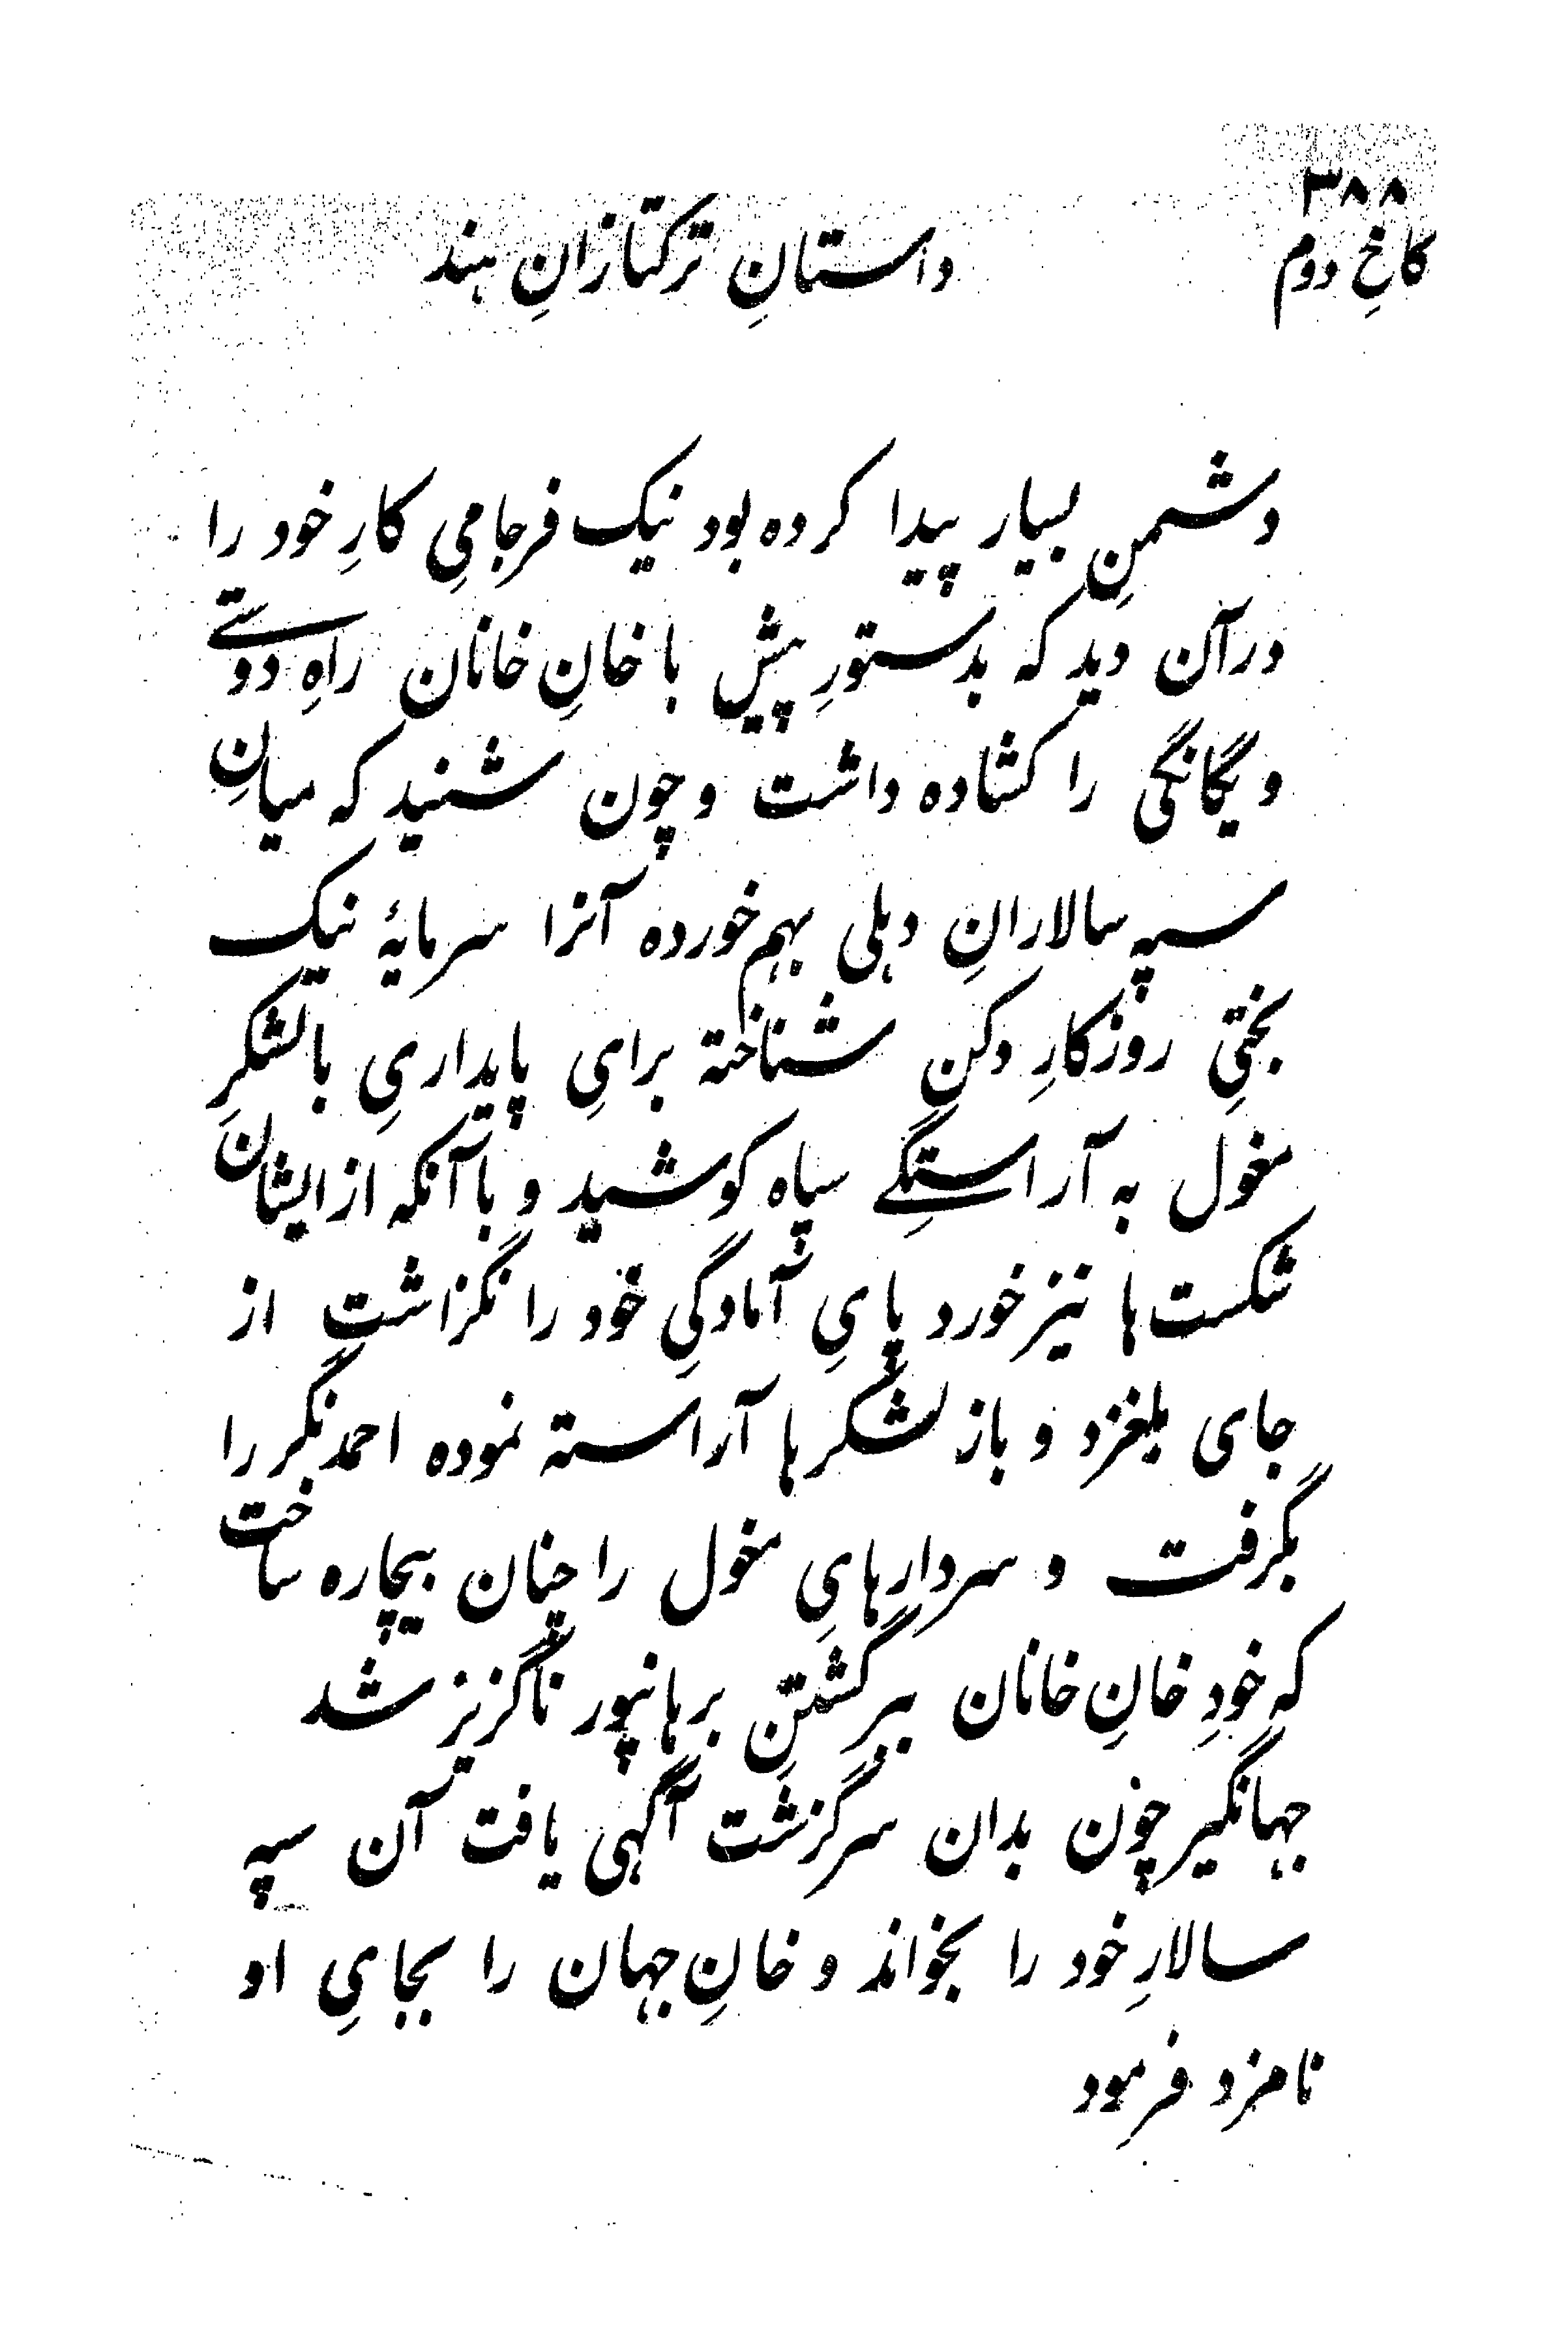 ۳۸۸
کاخِ دوم
داستانِ ترکتازانِ هند
دشمنِ بسیار پیدا کرده بود نیک فرجامیِ کارِ خود را
درآن دید که بدستورِ پیش با خانِ خانان راهِ دوستے
و یگانگی را کشاده داشت و چون شنید که میانِ
سپه سالارانِ دہلی بہم خورده آنرا سرمایۂ نیک
بختیِ روزکارِ دکن شناخته برایِ پایداریِ بالشکرِ
مغول به آراستگیے سپاه کوشید و باآنکه از ایشان
شکست ها نیز خورد پایِ آمادگیِ خود را نگزاشت از
جای بلغزد و باز لشکر ها آراسته نموده احمدنگر را
بگرفت و سردارهایِ مغول را چنان بیچاره ساخت
که خودِ خانِ خانان ببرگشتنِ برهانپور ناگزیز شد
جہانگیر چون بدان سرگزشت آگہی یافت آن سپه
سالارِ خود را بخواند و خانِ جہان را بجایِ او
نامزد فرمود